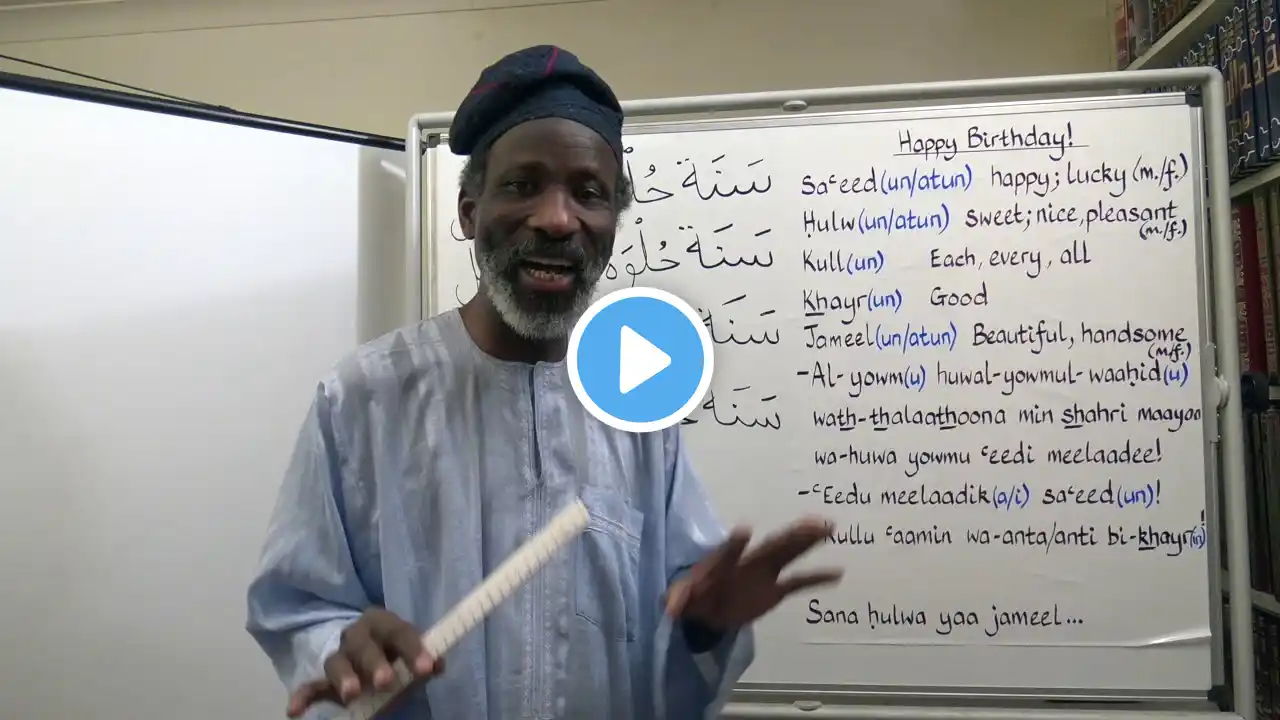 Happy Birthday!
سَنَة حُلْ
Saʿeed(un/atun) happy; lucky (m./f.)
Ḥulw(un/atun) sweet; nice, pleasant (m./f.)
سَنَة حُلْوَة
Kull(un) Each, every, all
Khayr(un) Good
سَنَة
Jameel(un/atun) Beautiful, handsome (m./f.)
-Al-yowm(u) huwal-yowmul-waaḥid(u)
سَنَة
wath-thalaathoona min shahri maayoo
wa-huwa yowmu ʿeedi meelaadee!
-ʿEedu meelaadik(a/i) saʿeed(un)!
Kullu ʿaamin wa-anta/anti bi-khayr(in)!
Sana ḥulwa yaa jameel...